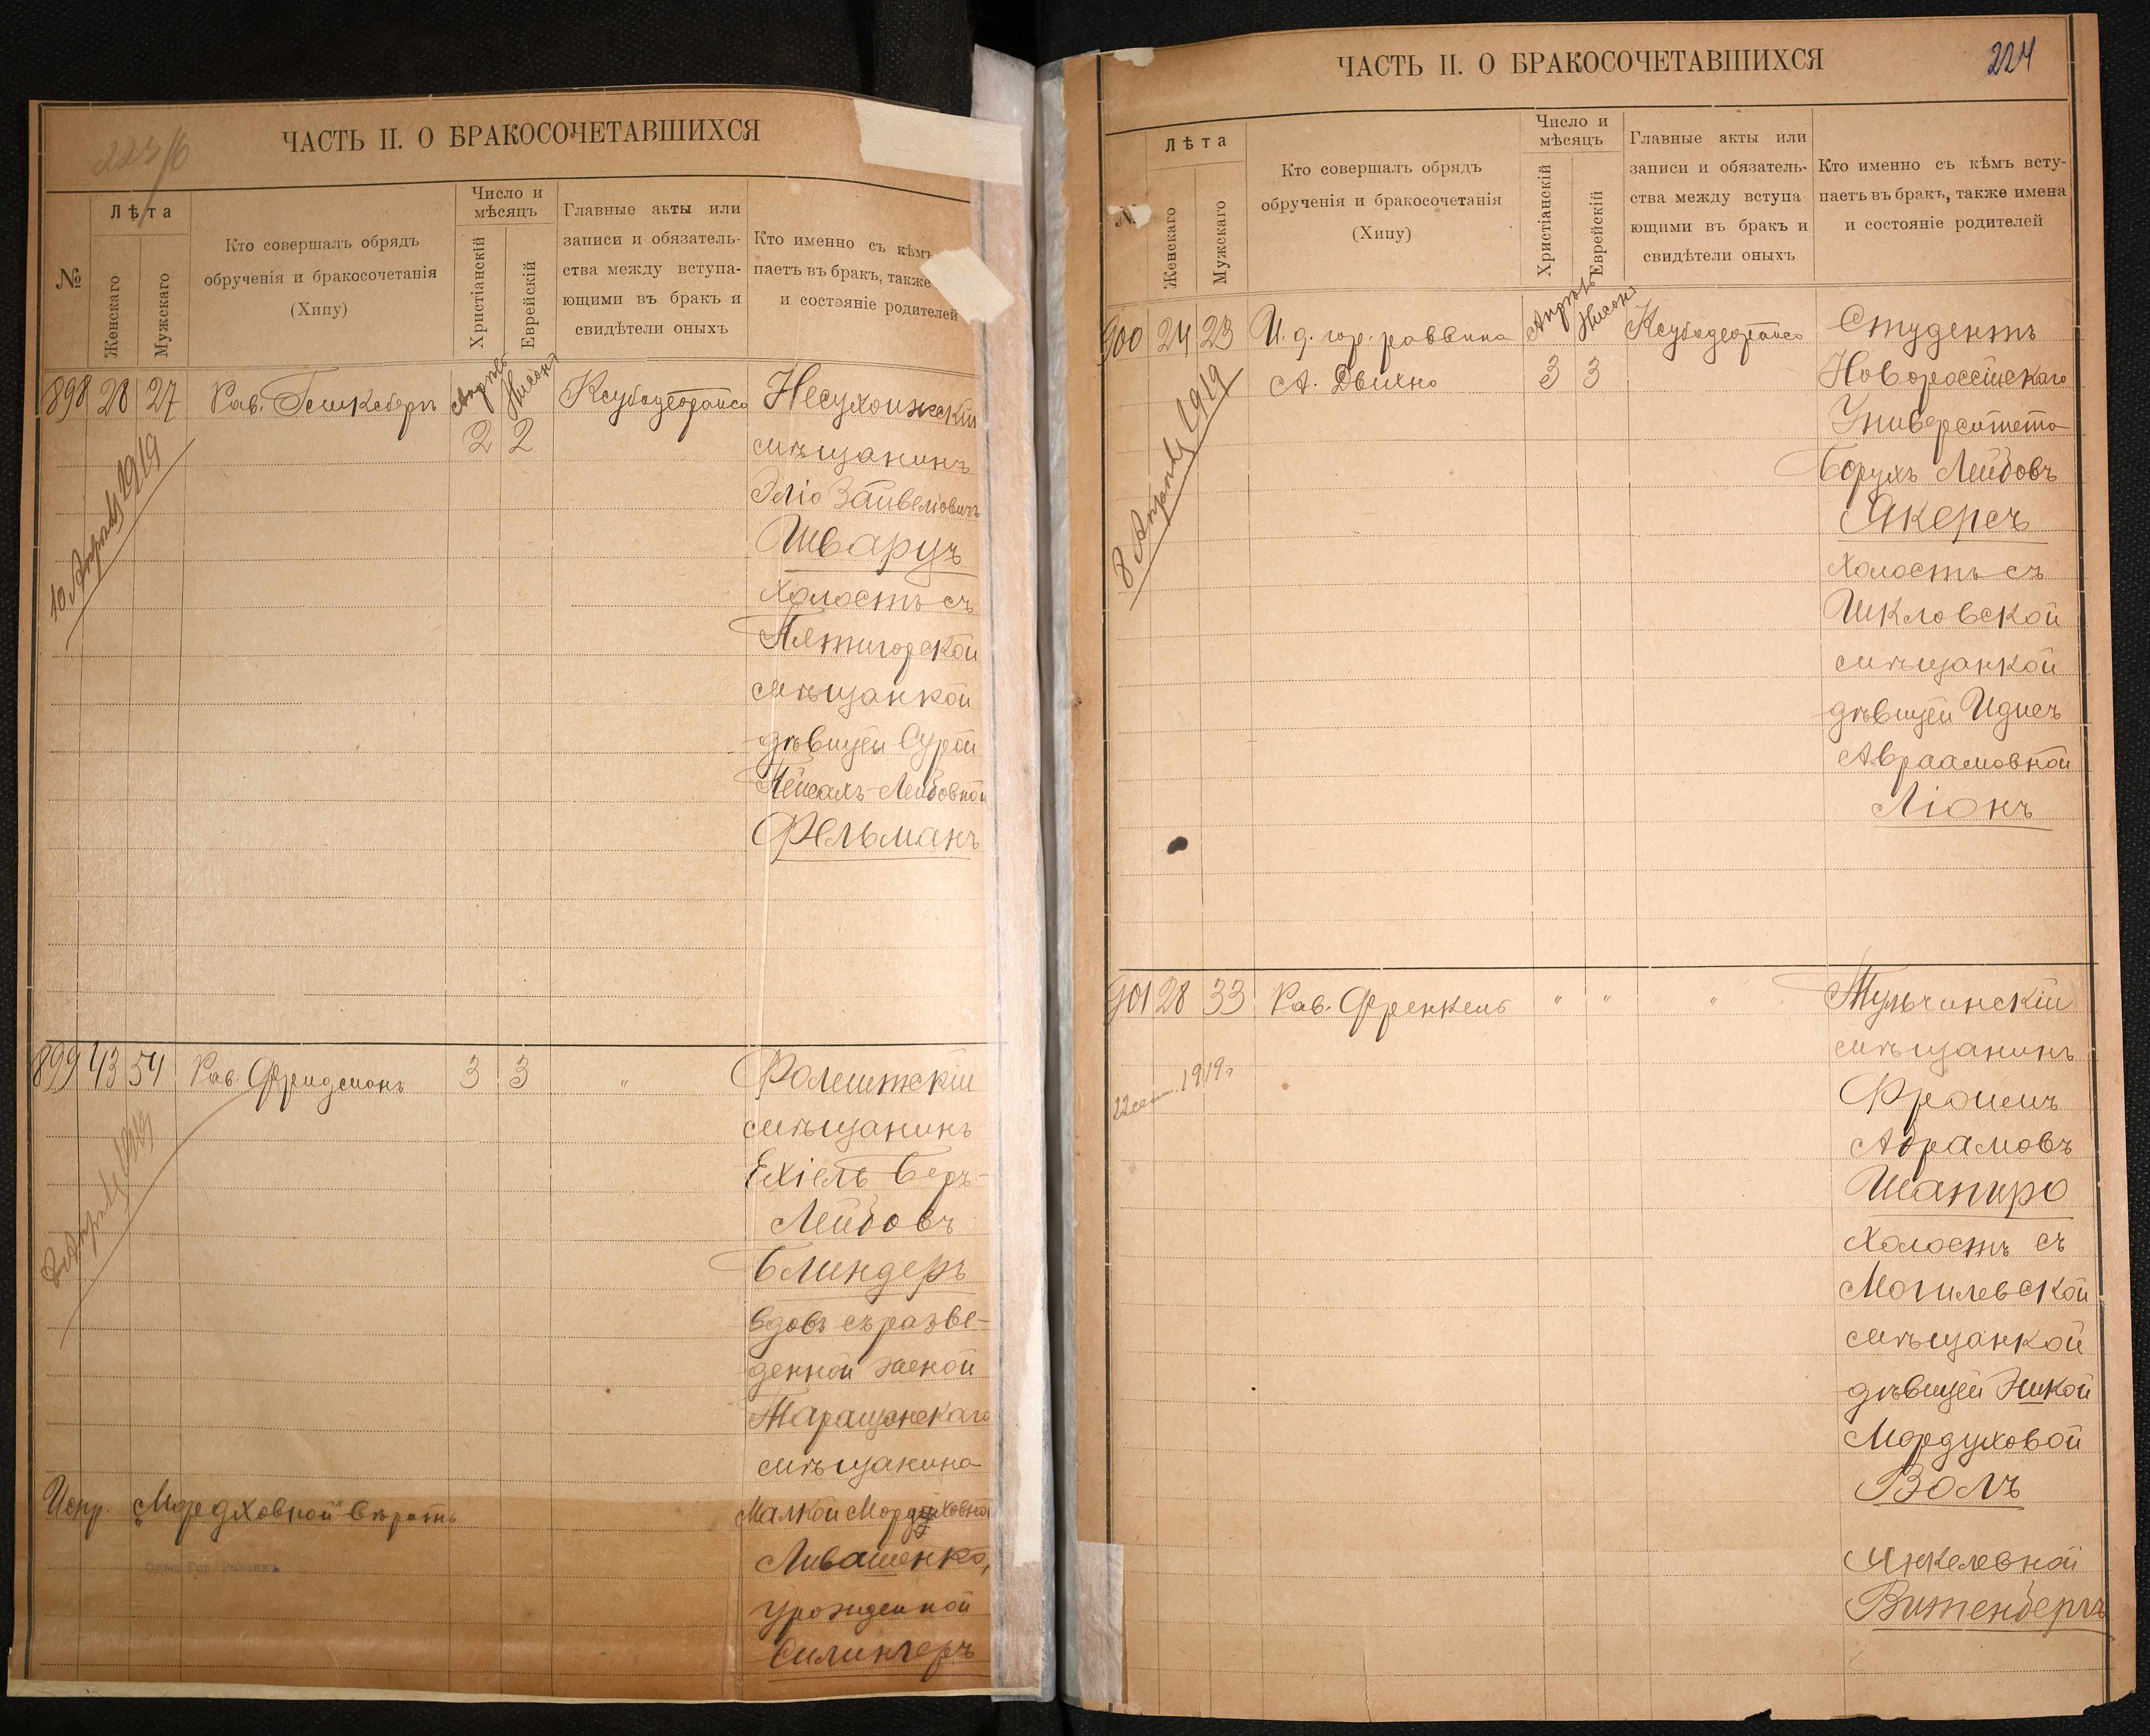 223/6
ЧАСТЬ II. О БРАКОСОЧЕТАВШИХСЯ
№
Лѣта
Женскаго
Мужскаго
Кто совершалъ обрядъ
обрученія и бракосочетанія
(Хипу)
Число и
мѣсяцъ
Христіанскій
Еврейскій
Главные акты или
записи и обязатель-
ства между вступа-
ющими въ бракъ и
свидѣтели оныхъ
Кто именно съ кѣмъ
паетъ въ бракъ, также
и состояніе родителей
898 28 27 Рав.
Апрѣль Нисонъ
2 2
10 Апрѣля 1919
мѣщанинъ
Эліо Зайвеліовичъ
Шварцъ
холостъ съ
Пятигорской
мѣщанкой
дѣвицей Сурой
Лейбовной
Фельманъ
899 43 54 Рав. Фридманъ 3 3 "
Фалештскій
мѣщанинъ
Ехіель Беръ-
Лейбовъ
Блиндеръ
вдовъ съ разве-
денной женой
Таращанскаго
мѣщанина
Малкой Мордуховной
Ливашенко,
урожденной
Силингеръ
Испр. „Мордховной" вѣрить
ЧАСТЬ II. О БРАКОСОЧЕТАВШИХСЯ
224
Лѣта
Женскаго
Мужскаго
Кто совершалъ обрядъ
обрученія и бракосочетанія
(Хипу)
Число и
мѣсяцъ
Христіанскій
Еврейскій
Главные акты или
записи и обязатель-
ства между вступа
ющими въ бракъ и
свидѣтели оныхъ
Кто именно съ кѣмъ всту-
паетъ въ бракъ, также имена
и состояніе родителей
900 24 23 И. д. гор. раввина
Апрѣль Нисонъ
А. Двихно 3 3
8 Апрѣля 1919
Студентъ
Новороссійскаго
Университета
Борухъ Лейбовъ
Якерсъ
холостъ съ
Шкловской
мѣщанкой
дѣвицей Идесъ
Авраамовной
Ліонъ
901 28 33 Рав. Френкель " " "
1919 г
Тульчинскій
мѣщанинъ
Фроимъ
Абрамовъ
Шапиро
холостъ съ
Могилевской
мѣщанкой
дѣвицей
Мордуховой
Волъ
Янкелевной
Витенбергъ